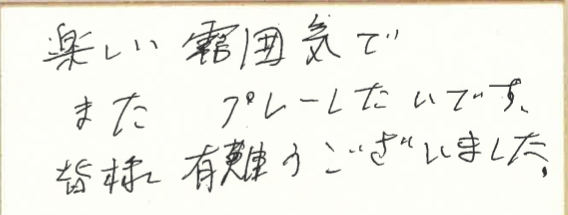 楽しい雰囲気で
また プレーしたいです。
皆様 有難うございました。